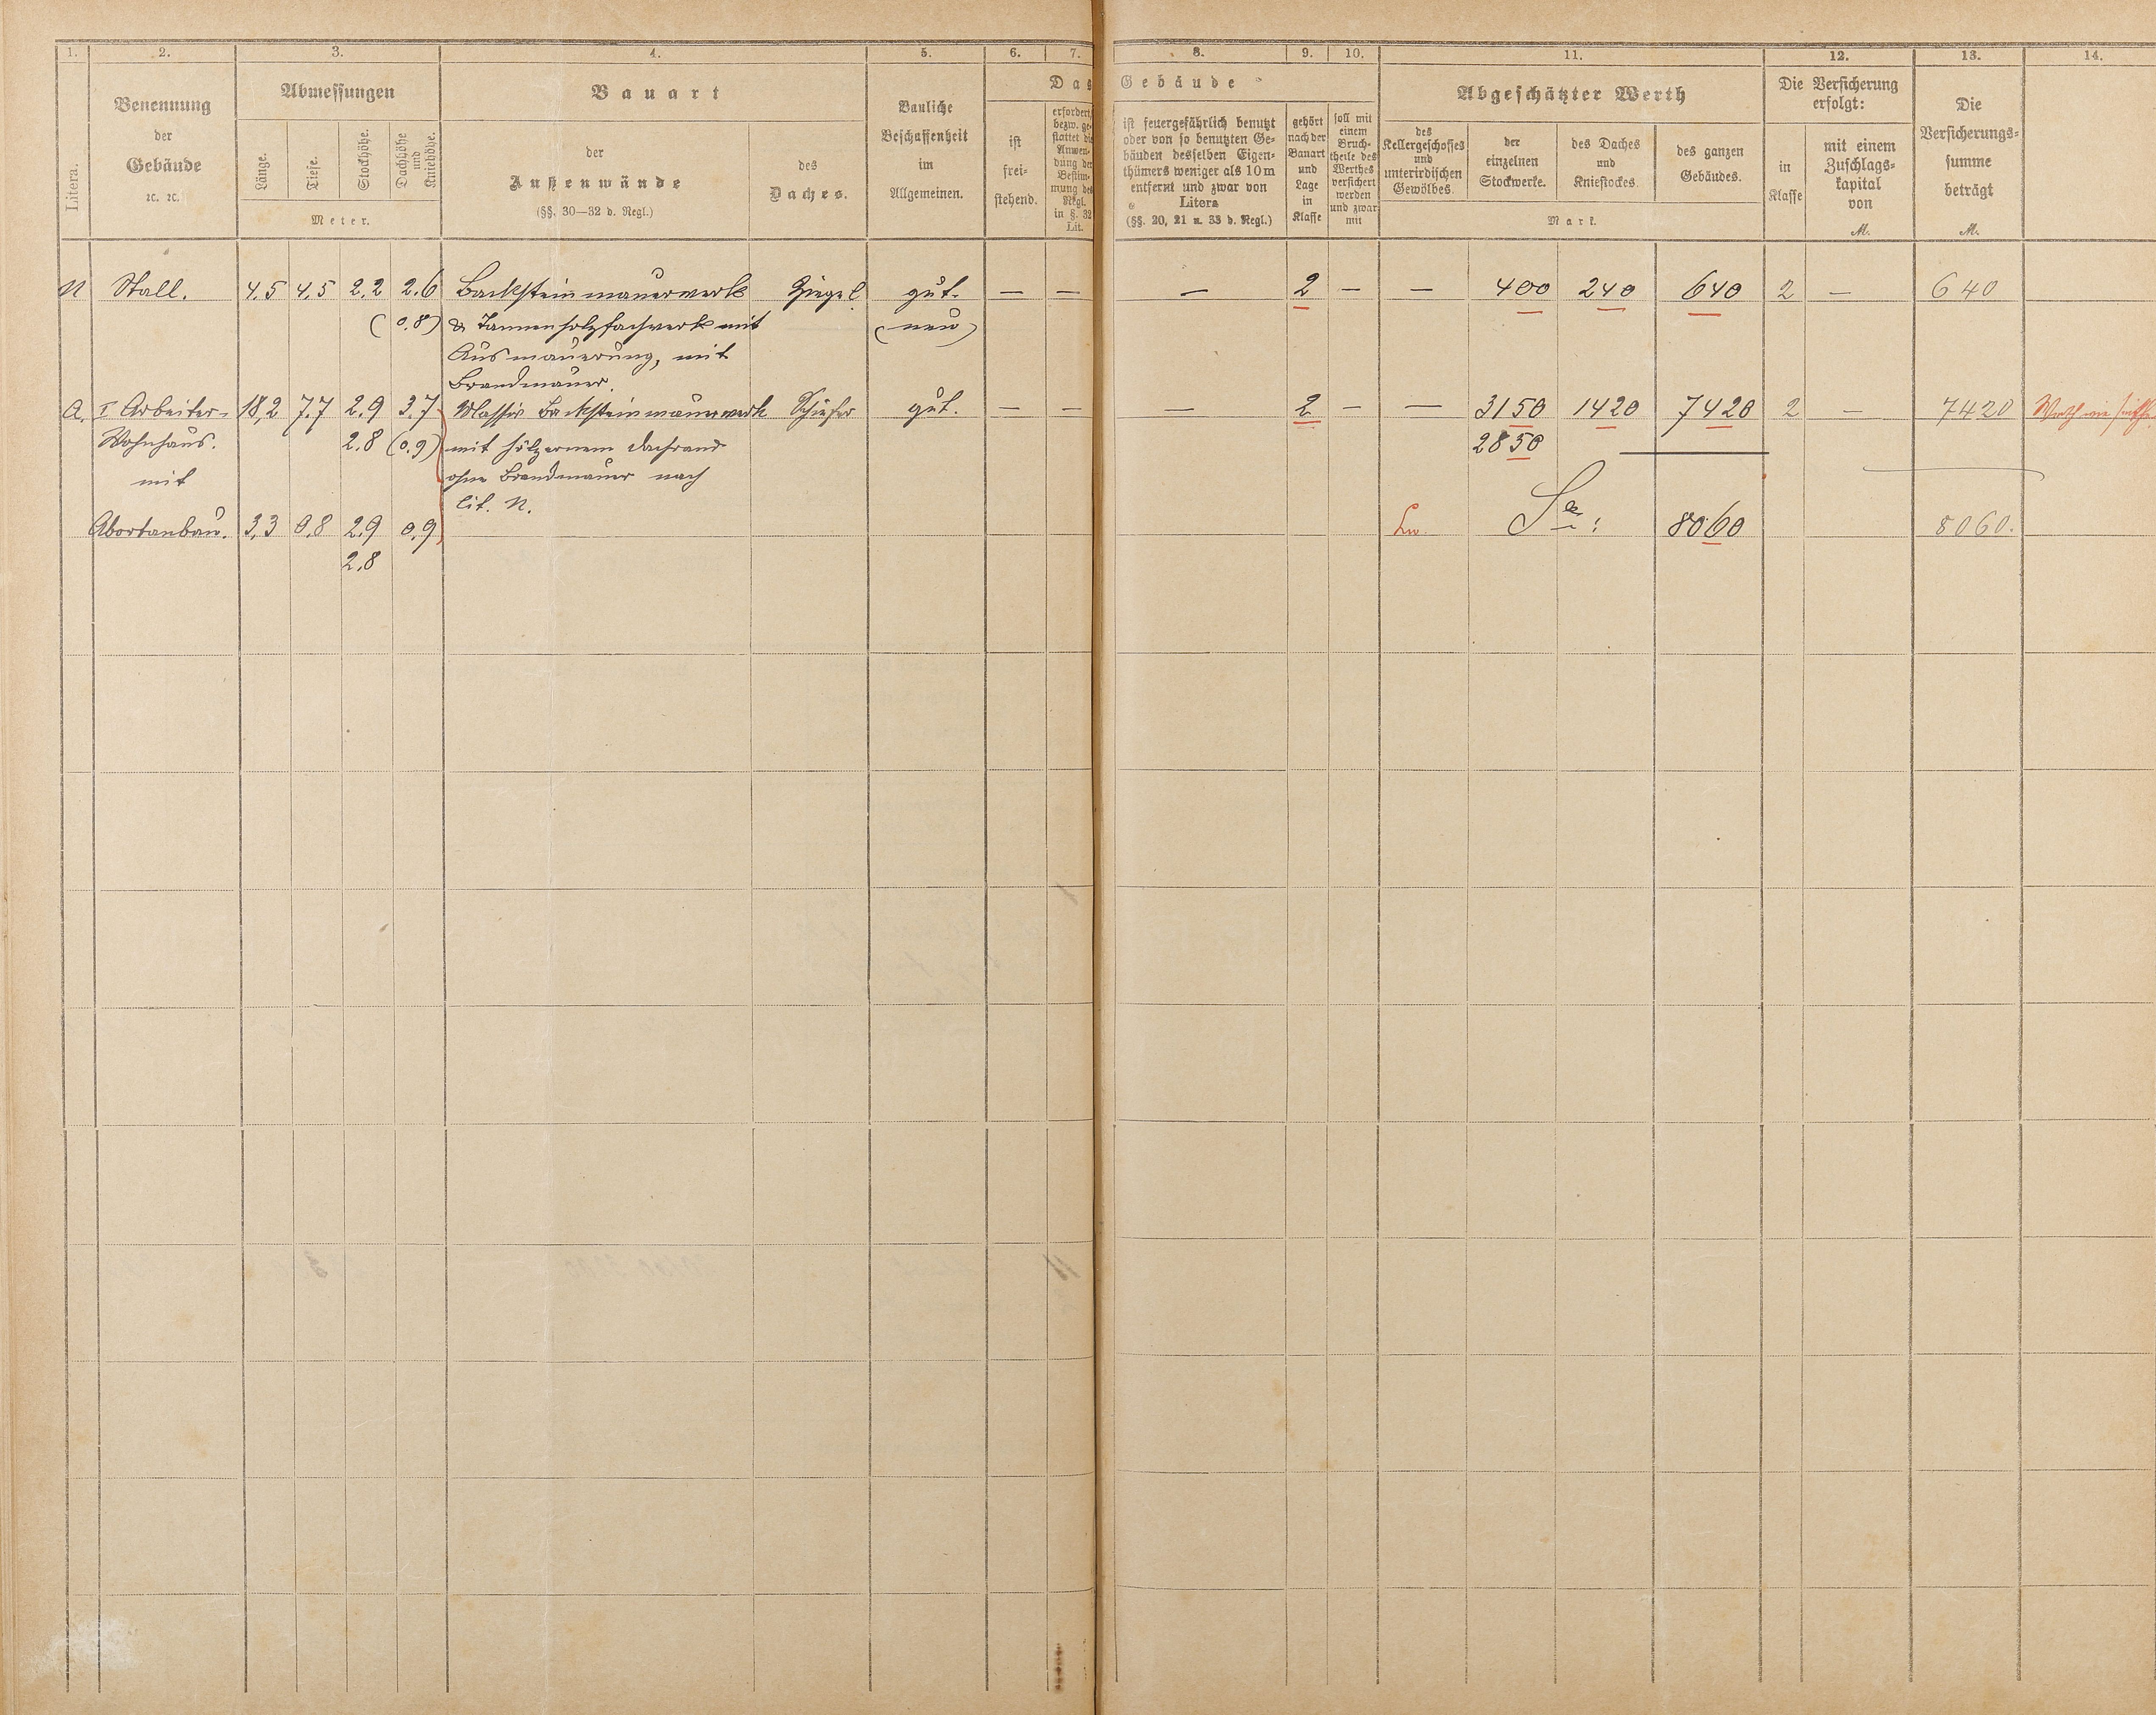 1. 2. 3. 4. 5. 6. 7. 8. 9. 10. 11. 12. 13. 14.
Litera.
Benennung
der
Gebäude
ꝛc. ꝛc.
Abmessungen
Länge.
Tiefe.
Stockhöhe.
Dachhöhe
und
Kniehöhe.
Meter.
Bauart
der
Außenwände
(§§. 30—32 d. Regl.)
des
Daches.
Bauliche
Beschaffenheit
im
Allgemeinen.
Das Gebäude
ist
frei-
stehend.
erfordert
bezw. ge-
stattet die
Anwen-
dung der
Bestim-
mung des
Regl.
in §. 32
Lit.
ist feuergefährlich benutzt
oder von so benutzten Ge-
bäuden desselben Eigen-
thümers weniger als 10 m
entfernt und zwar von
Litera
(§§. 20, 21 u. 33 d. Regl.)
gehört
nach der
Bauart
und
Lage
in
Klasse
soll mit
einem
Bruch-
theile des
Werthes
versichert
werden
und zwar
mit
Abgeschätzter Werth
des
Kellergeschosses
und
unterirdischen
Gewölbes.
der
einzelnen
Stockwerke.
des Daches
und
Kniestockes.
des ganzen
Gebäudes.
Mark.
Die Versicherung
erfolgt:
in
Klasse
mit einem
Zuschlags-
kapital
von
M.
Die
Versicherungs-
summe
beträgt
M.
N Stall. 4,5 4,5 2,2 2,6 Backsteinmauerwerk Ziegel gut. — — — 2 — — 400 240 640 2 — 640
(0,8) & Tannenholzfachwerk mit (neu)
Ausmauerung, mit
Brandmauer.
A. I Arbeiter- 18,2 7,7 2,9 3,7 Massiv Backsteinmauerwerk Schiefer gut. — — — 2 — — 3150 1420 7420 2 — 7420 Werth wie
Wohnhaus. 2,8 (0,9) mit hölzernem Dachrand 2850
mit ohne Brandmauer nach
lit. N.
Abortanbau. 3,3 0,8 2,9 0,9 Sa: 8060 8060.
2,8